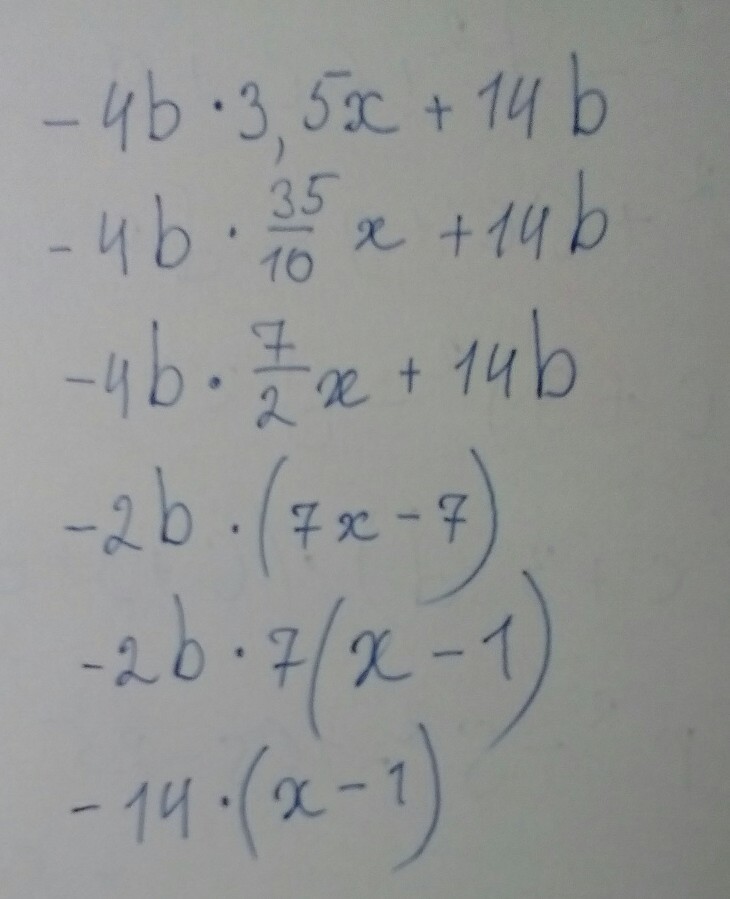 -4b · 3,5x + 14b
-4b · 35/10 x + 14b
-4b · 7/2 x + 14b
-2b · (7x - 7)
-2b · 7(x - 1)
-14 · (x - 1)